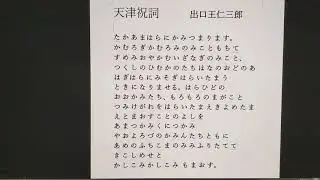 天津祝詞 出口王仁三郎
たかあまはらにかみつまります。
かむろぎかむろみのみこともちて
すめみおやかむいざなぎのみこと、
つくしのひむかのたちはなのおどのあ
はぎはらにみそぎはらいたまう
ときになりませる、はらひどの
おおかみたち、もろもろのまがこと
つみけがれをはらいたまえきよめたま
えとまおすことのよしを
あまつかみくにつかみ
やおよろづのかみんたちともに
あめのふちこまのみみふりたてて
きこしめせと
かしこみかしこみ もまおす。